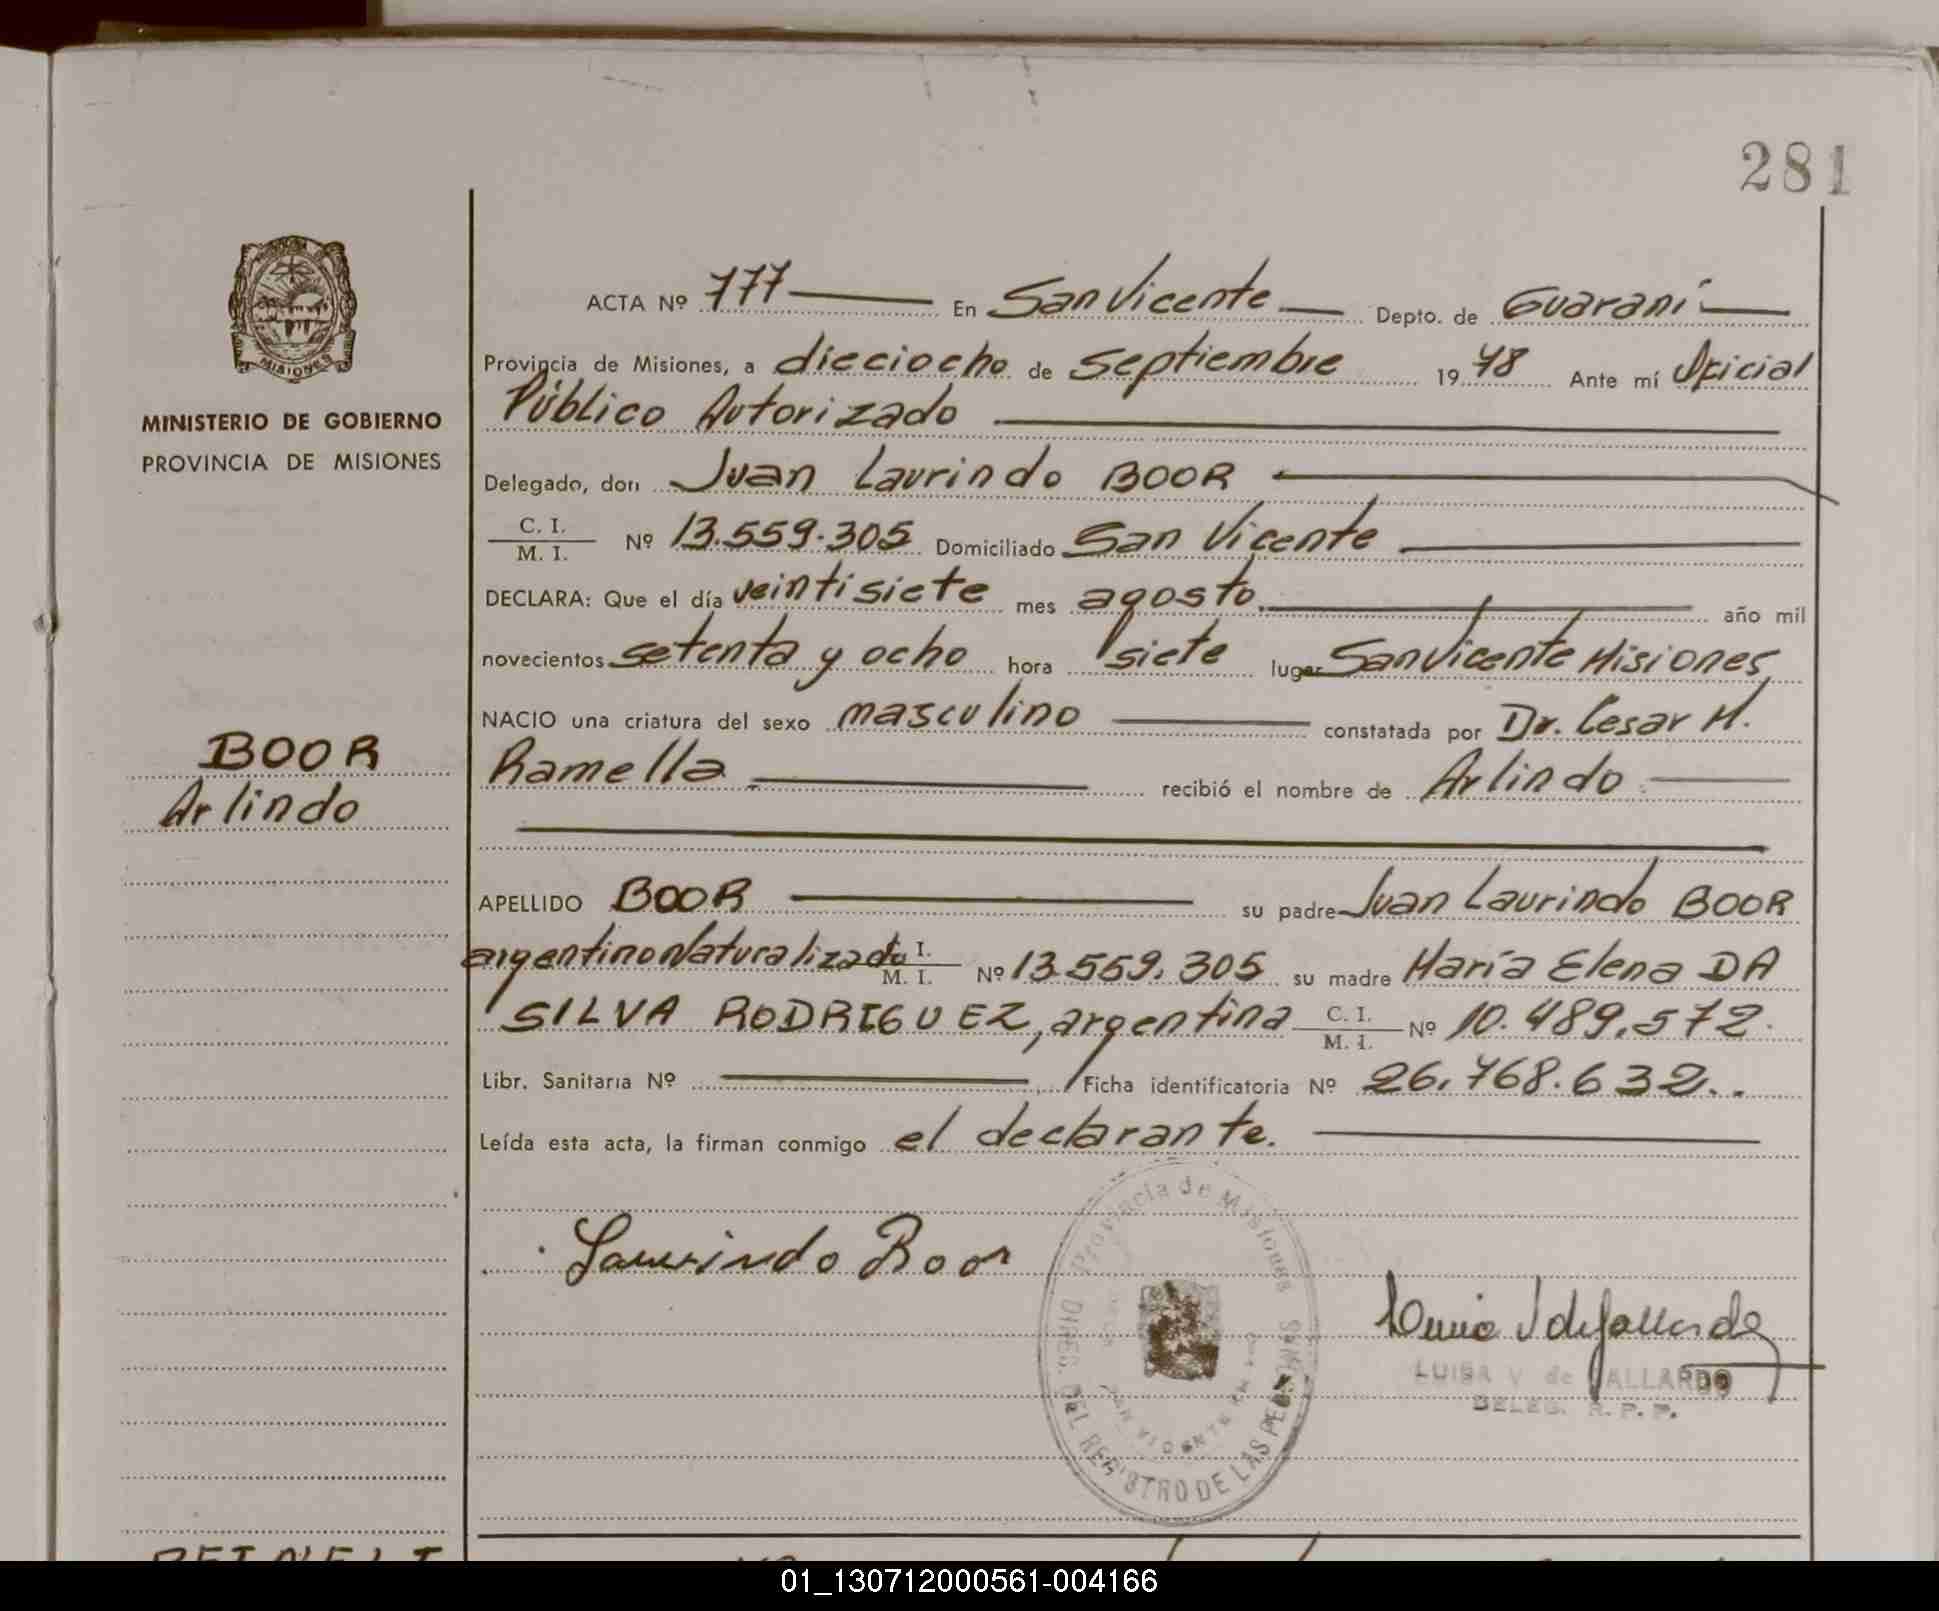 281
ACTA Nº 777 En San Vicente Depto. de Guaraní
Provincia de Misiones, a dieciocho de Septiembre 1978 Ante mí Oficial
Público Autorizado
MINISTERIO DE GOBIERNO
PROVINCIA DE MISIONES
MISIONES
Delegado, don Juan Laurindo BOOR
C. I.
M. I. Nº 13.559.305 Domiciliado San Vicente
DECLARA: Que el día veintisiete mes agosto año mil
novecientos setenta y ocho hora siete lugar San Vicente Misiones
NACIO una criatura del sexo masculino constatada por Dr. Cesar H.
Ramella recibió el nombre de Arlindo
BOOR
Arlindo
APELLIDO BOOR su padre Juan Laurindo BOOR
argentino Naturalizado C. I.
M. I. Nº 13.559.305 su madre María Elena DA
SILVA RODRIGUEZ, argentina C. I.
M. I. Nº 10.489.572.
Libr. Sanitaria Nº Ficha identificatoria Nº 26.768.632..
Leída esta acta, la firman conmigo el declarante.
Laurindo Boor
Provincia de Misiones
DIREC. DEL REGISTRO DE LAS PERSONAS
SAN VICENTE
LUISA V de GALLARDO
DELEG. R. P. P.
01_130712000561-004166